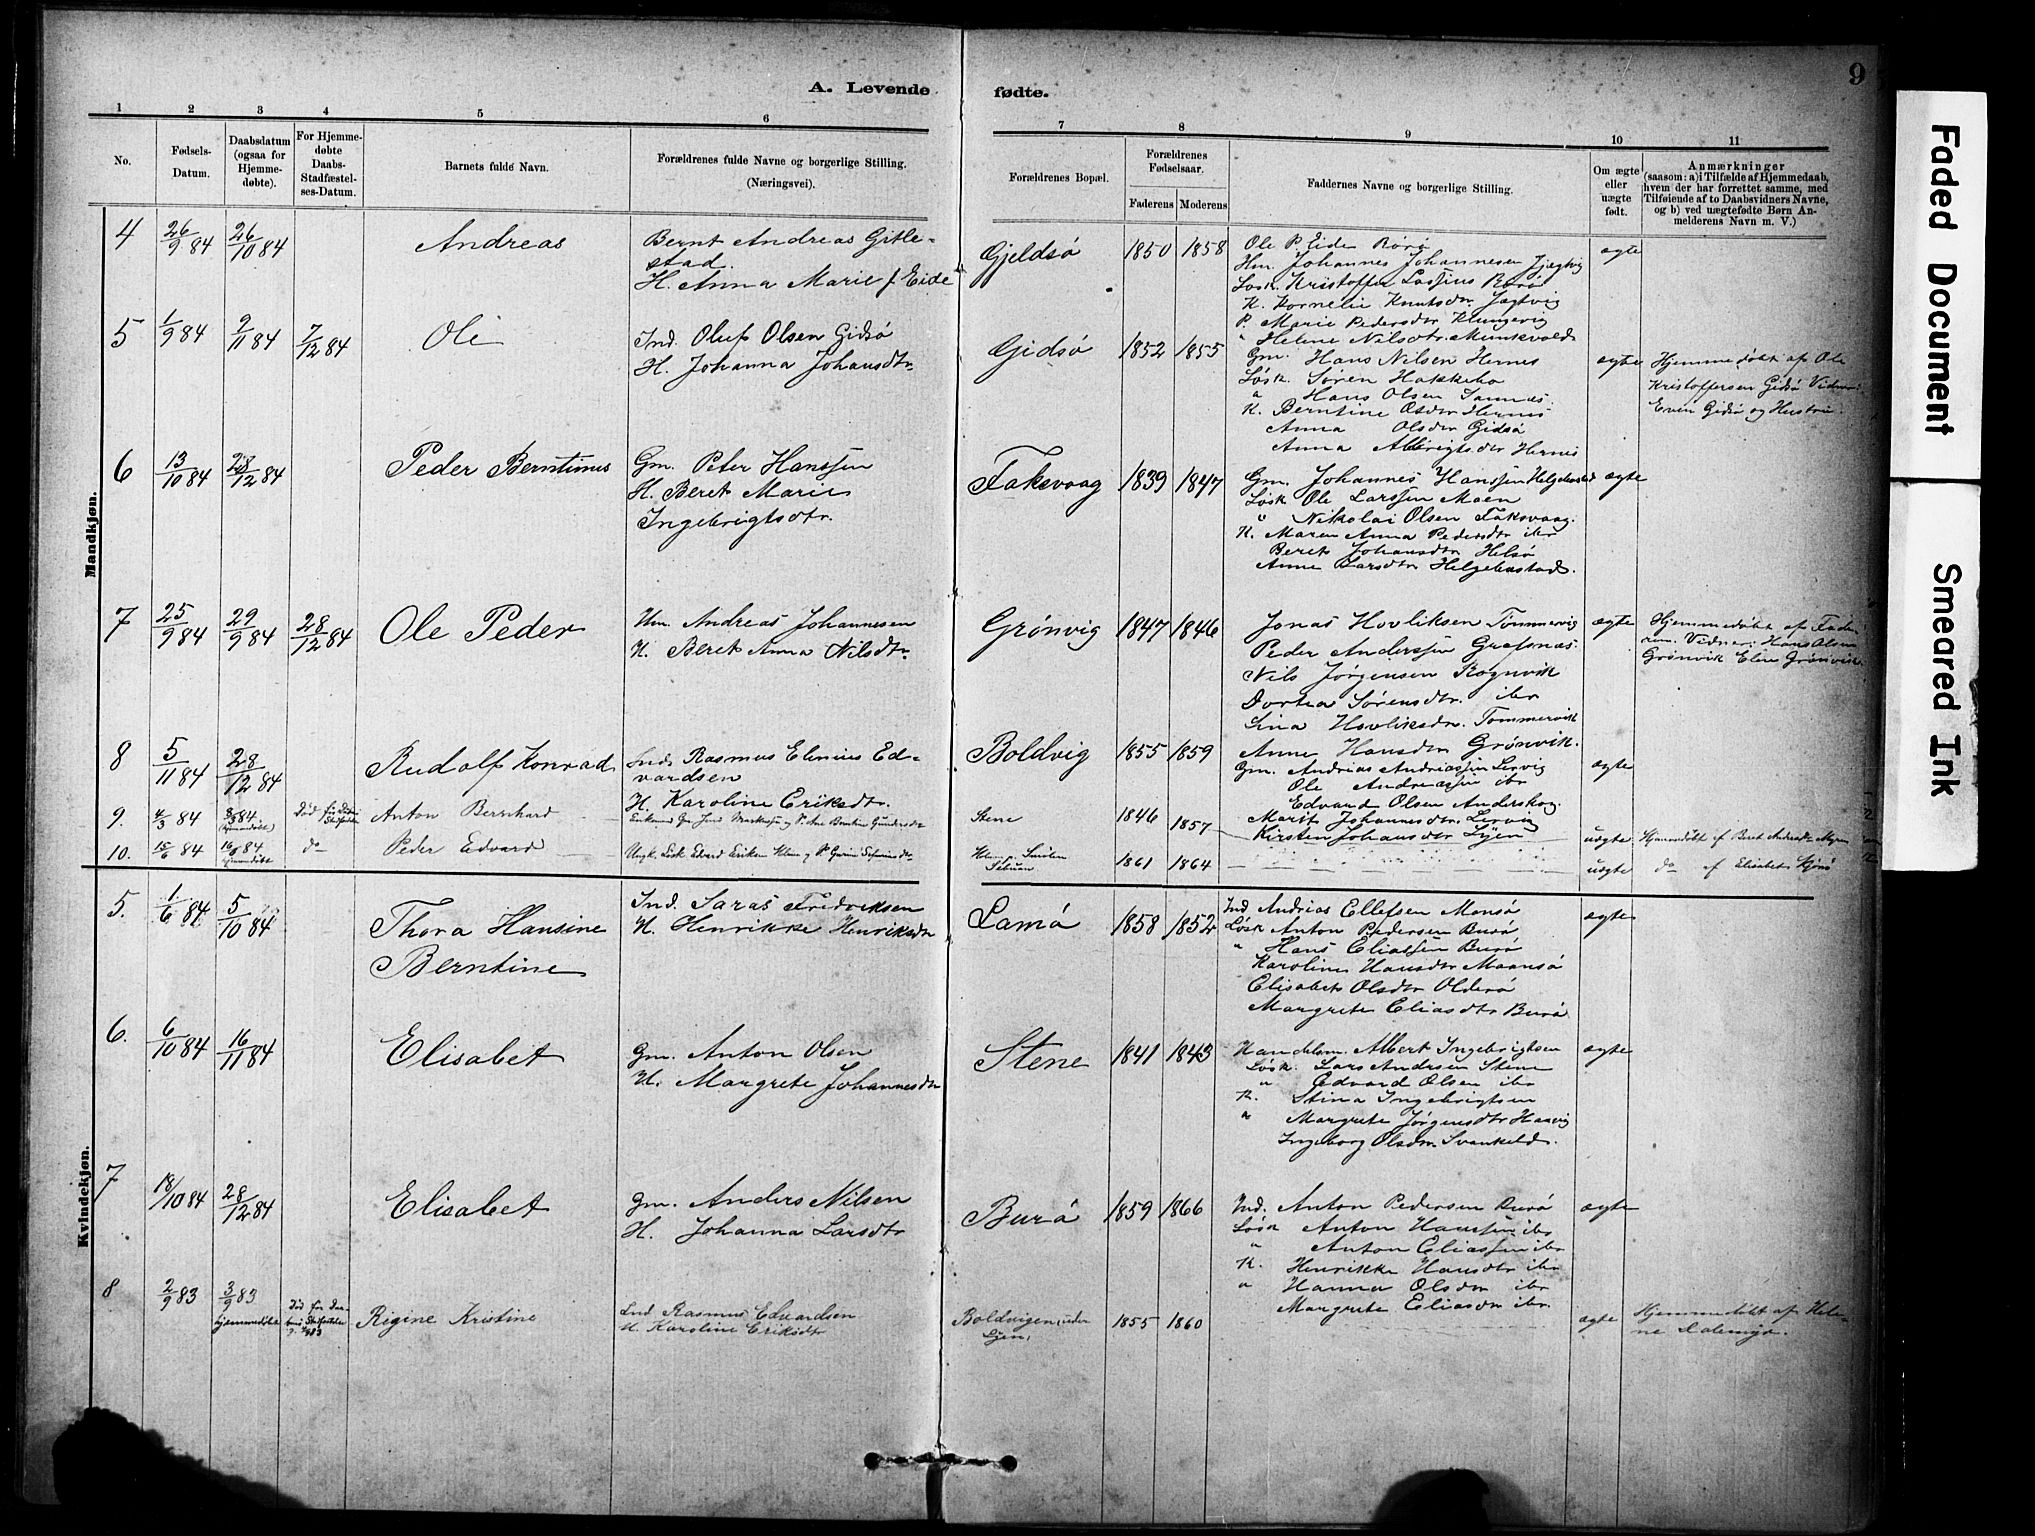 A. Levende fødte.
9
1 2 3 4 5 6 7 8 9 10 11
No.
Fødsels-Datum.
Daabsdatum (ogsaa for Hjemme-døbte).
For Hjemme-døbte Daabs-Stadfæstel-ses-Datum.
Barnets fulde Navn.
Forældrenes fulde Navne og borgerlige Stilling. (Næringsvei).
Forældrenes Bopæl.
Forældrenes Fødselsaar.
Faderens Moderens
Faddernes Navne og borgerlige Stilling.
Om ægte eller uægte født.
Anmærkninger
(saasom: a) i Tilfælde af Hjemmedaab,
hvem der har forrettet samme, med
Tilføiende af to Daabsvidners Navne,
og b) ved uægtefødte Børn An-
melderens Navn m. V.)
Mandkjøn.
4 26/9 84 26/10 84 Andreas
Bernt Andreas Gitle-
stad.
H. Anna Marie f Eide
Gjeldsø 1850 1858
Ole P. Eide Rørø
Hm. Johannes Johannesen
Løsk. Kristoffer Rørø
K. Kornelie Knutsdtr Jægtvig
P. Marie Pedersdtr Klungevig
" Helene Nilsdtr. Munkvold
ægte
5 1/9 84 9/11 84 7/12 84 Ole
Ind. Oluf Olsen Gidsø
H. Johanna Johansdtr
Gidsø 1852 1855
Gm. Hans Nilsen Hernes
Løsk. Søren Hakkebo
" Hans Olsen Sannes
K. Berntine Olsdtr Hernes
Anna Olsdtr Gidsø
Anna Hernes
ægte
Hjemmedøbt af Ole
Kristoffersen Gidsø
Even Gidsø og Hustru.
6 13/10 84 28/12 84 Peder Berntinus
Gm. Peter Hanssen
H. Beret Marie
Ingebrigtsdtr.
Faksvaag 1839 1847
Gm. Johannes Hanssen
Løsk Ole Larssen Moen
" Nikolai Olsen Faksvaag.
K. Maren Anna Pedersdtr ibr
Beret Johansdtr Helsø
Anne Larsdtr Helgebostad.
ægte
7 25/9 84 29/9 84 28/12 84 Ole Peder
Hm. Andreas Johannesen
H. Beret Anna Nilsdtr
Grønvig 1847 1846
Jonas Hovliksen Tømmervig
Peder Anderssen Grefsnæs
Nils Jørgensen Rognvik
Dortea Sørensdtr. ibr
Lina Hovliksdtr. Tømmervik
Anne Hansdtr Grønvik.
ægte
Hjemmedøbt af Fade-
ren. Vidner: Hans Olsen
Grønvik Elen Grønvik.
8 5/11 84 28/12 84 Rudolf Konrad
Ind. Rasmus Elenius Ed-
vardsen
H. Karoline Eriksdtr.
Boldvig 1855 1859
Gm. Andrias Andriassen Lervig
Ole Andreassen ibr
Edvard Olsen Anderskog
Marit Johannesdtr. Lervig
Kirsten Johansdtr Lyen
ægte
9. 84 84 Anton Bernhard
Stene 1846 1857
uægte
10. 15/6 84 16/8 84 do Peder Edvard
1861 1864
uægte do af Elisabet
Kvindekjøn.
5. 1/6 84 5/10 84 Thora Hansine
Berntine
Ind. Saras Fredriksen
H. Henrikke Henriksdtr
Lamø 1858 1852
Ind Andrias Ellefsen Monsø
Løsk Anton Pedersen Burø
" Hans Eliassen Burø
Karoline Hansdtr Maansø
Elisabet Olsdtr Olderø
Margrete Eliasdtr Burø
ægte
6. 6/10 84 16/11 84 Elisabet
Gm. Anton Olsen
H. Margrete Johannesdtr
Stene 1841 1843
Handelsm. Albert Ingebrigtsen
Løsk. Lars Andersen Stene
" Edvard Olsen ibr
K. Stina Ingebrigtsen
" Margrete Jørgensdtr Haavig
Ingeborg Olsdtr. Svankild.
ægte
7 18/10 84 28/12 84 Elisabet
Gm. Anders Nilsen
H. Johanna Larsdtr
Burø 1859 1866
Ind. Anton Pedersen Burø
Løsk Anton Hanssen ibr
" Anton Eliassen ibr
K. Henrikke Hansdtr ibr
" Hanna Olsdtr ibr
Margrete Eliasdtr ibr.
ægte
8 2/9 83 3/9 83
hjemmedøbt
Rigine Kristine
Ind Rasmus Edvardsen
H. Karoline Eriksdtr
Boldvigen under
Lyen, 1855 1860
ægte
Hjemmedøbt af Hele-
ne Dalemyr.
Faded Document
Smeared Ink